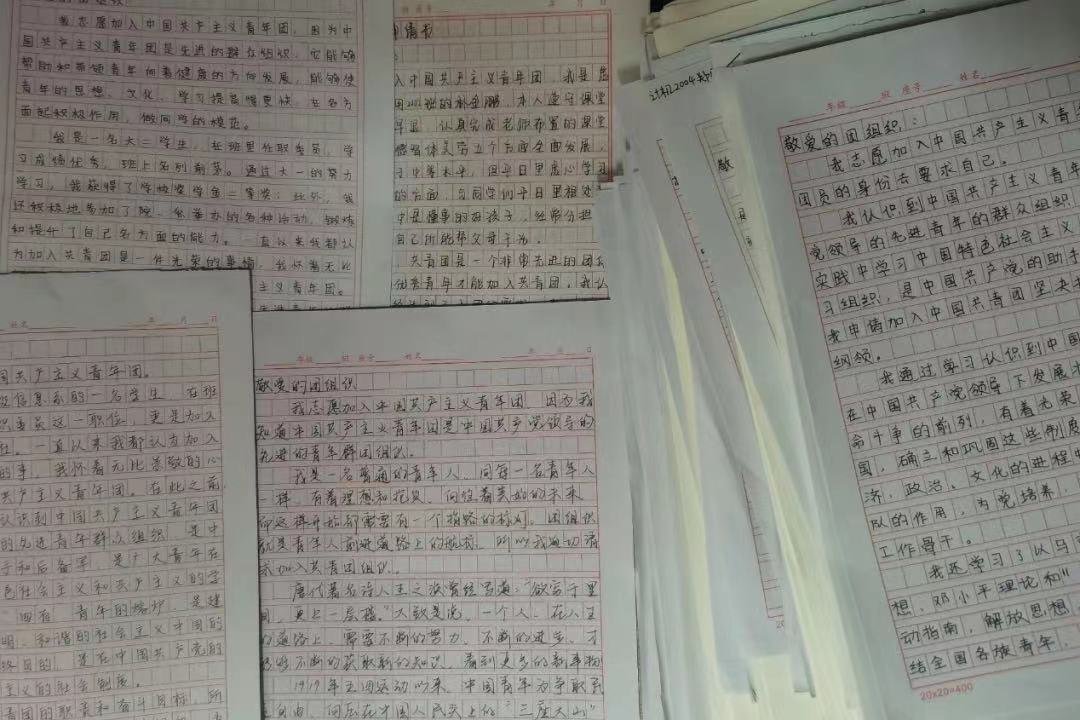 我志愿加入中国共产主义青年团，因为中
国共产主义青年团是先进的群众组织，它能够
帮助和带领青年向着健康的方向发展，能够使
青年的思想、文化、学习提高得更快，在各方
面起积极作用，做同学的模范。
我是一名大二学生，在班里任职委员，学
习成绩优秀，班上名列前茅。通过大一的努力
学习，我获得了学校奖学金二等奖；此外，我
还积极地参加了院、系举办的各种活动，锻炼
和提升了自己各方面的能力。一直以来我都认
为加入共青团是一件光荣的事情，我怀着无比
主义青年团。
年 月 日
申请书
入中国共产主义青年团，我是
本人遵守课堂
认真完成老师布置的课堂
德智体美劳五个方面全面发展，
习中等水平，但平日里虚心学习
的方面，与同学们平日里相处
中是懂事的好孩子，经常分担
自己所能帮父母干活。
共青团是一个非常先进的团
优秀青年才能加入共青团。我认
姓名 年 月 日
国共产主义青年团。
信息系的一名学生，在班
委员这一职位，更是加入
一直以来我都认为加入
的事，我怀着无比崇敬的心
共产主义青年团。在此之前
认识到中国共产主义青年团
的先进青年群众组织，是中
手和后备军，是广大青年在
色社会主义和共产主义的学
四有 青年的熔炉，是建
明、和谐的社会主义中国的
终目的，是在中国共产党的
主义的社会制度。
青团的职责和奋斗目标，所
年级 班 座号 姓名 年 月 日
敬爱的团组织
我志愿加入中国共产主义青年团，因为我
知道中国共产主义青年团是中国共产党领导的
先进的青年群团组织。
我是一名普通的青年人，同每一名青年人
一样，有着理想和抱负，向往着美好的未来
而这样
就是青年人前进道路上的航标，所以我迫切请
求加入共青团组织。
唐代著名诗人王之涣曾经写道：“欲穷千里
目，更上一层楼。”大致是说，一个人，在人生
的道路上，需要不断的努力，不断的进步，才
能够不断的获取新的知识，看到更多的新事物
1919年五四运动以来，中国青年为争取民
自由，向压在中国人民头上的“三座大山”
年级 班 座号 姓名
敬爱的团组织：
我志愿加入中国共产主义青年
团员的身份去要求自己。
我认识到中国共产主义青年
党领导的先进青年的群众组织，
实践中学习中国特色社会主义
习组织，是中国共产党的助手
我申请加入中国共青团坚决拥
纲领。
我通过学习认识到中国
在中国共产党领导下发展壮
命斗争的前列，有着光荣
国，确立和巩固这些制度
济、政治、文化的进程中
队的作用，为党培养、
工作骨干。
我还学习了以马
想、邓小平理论和“
动指南，解放思想，
结全国各族青年，
20×20=400